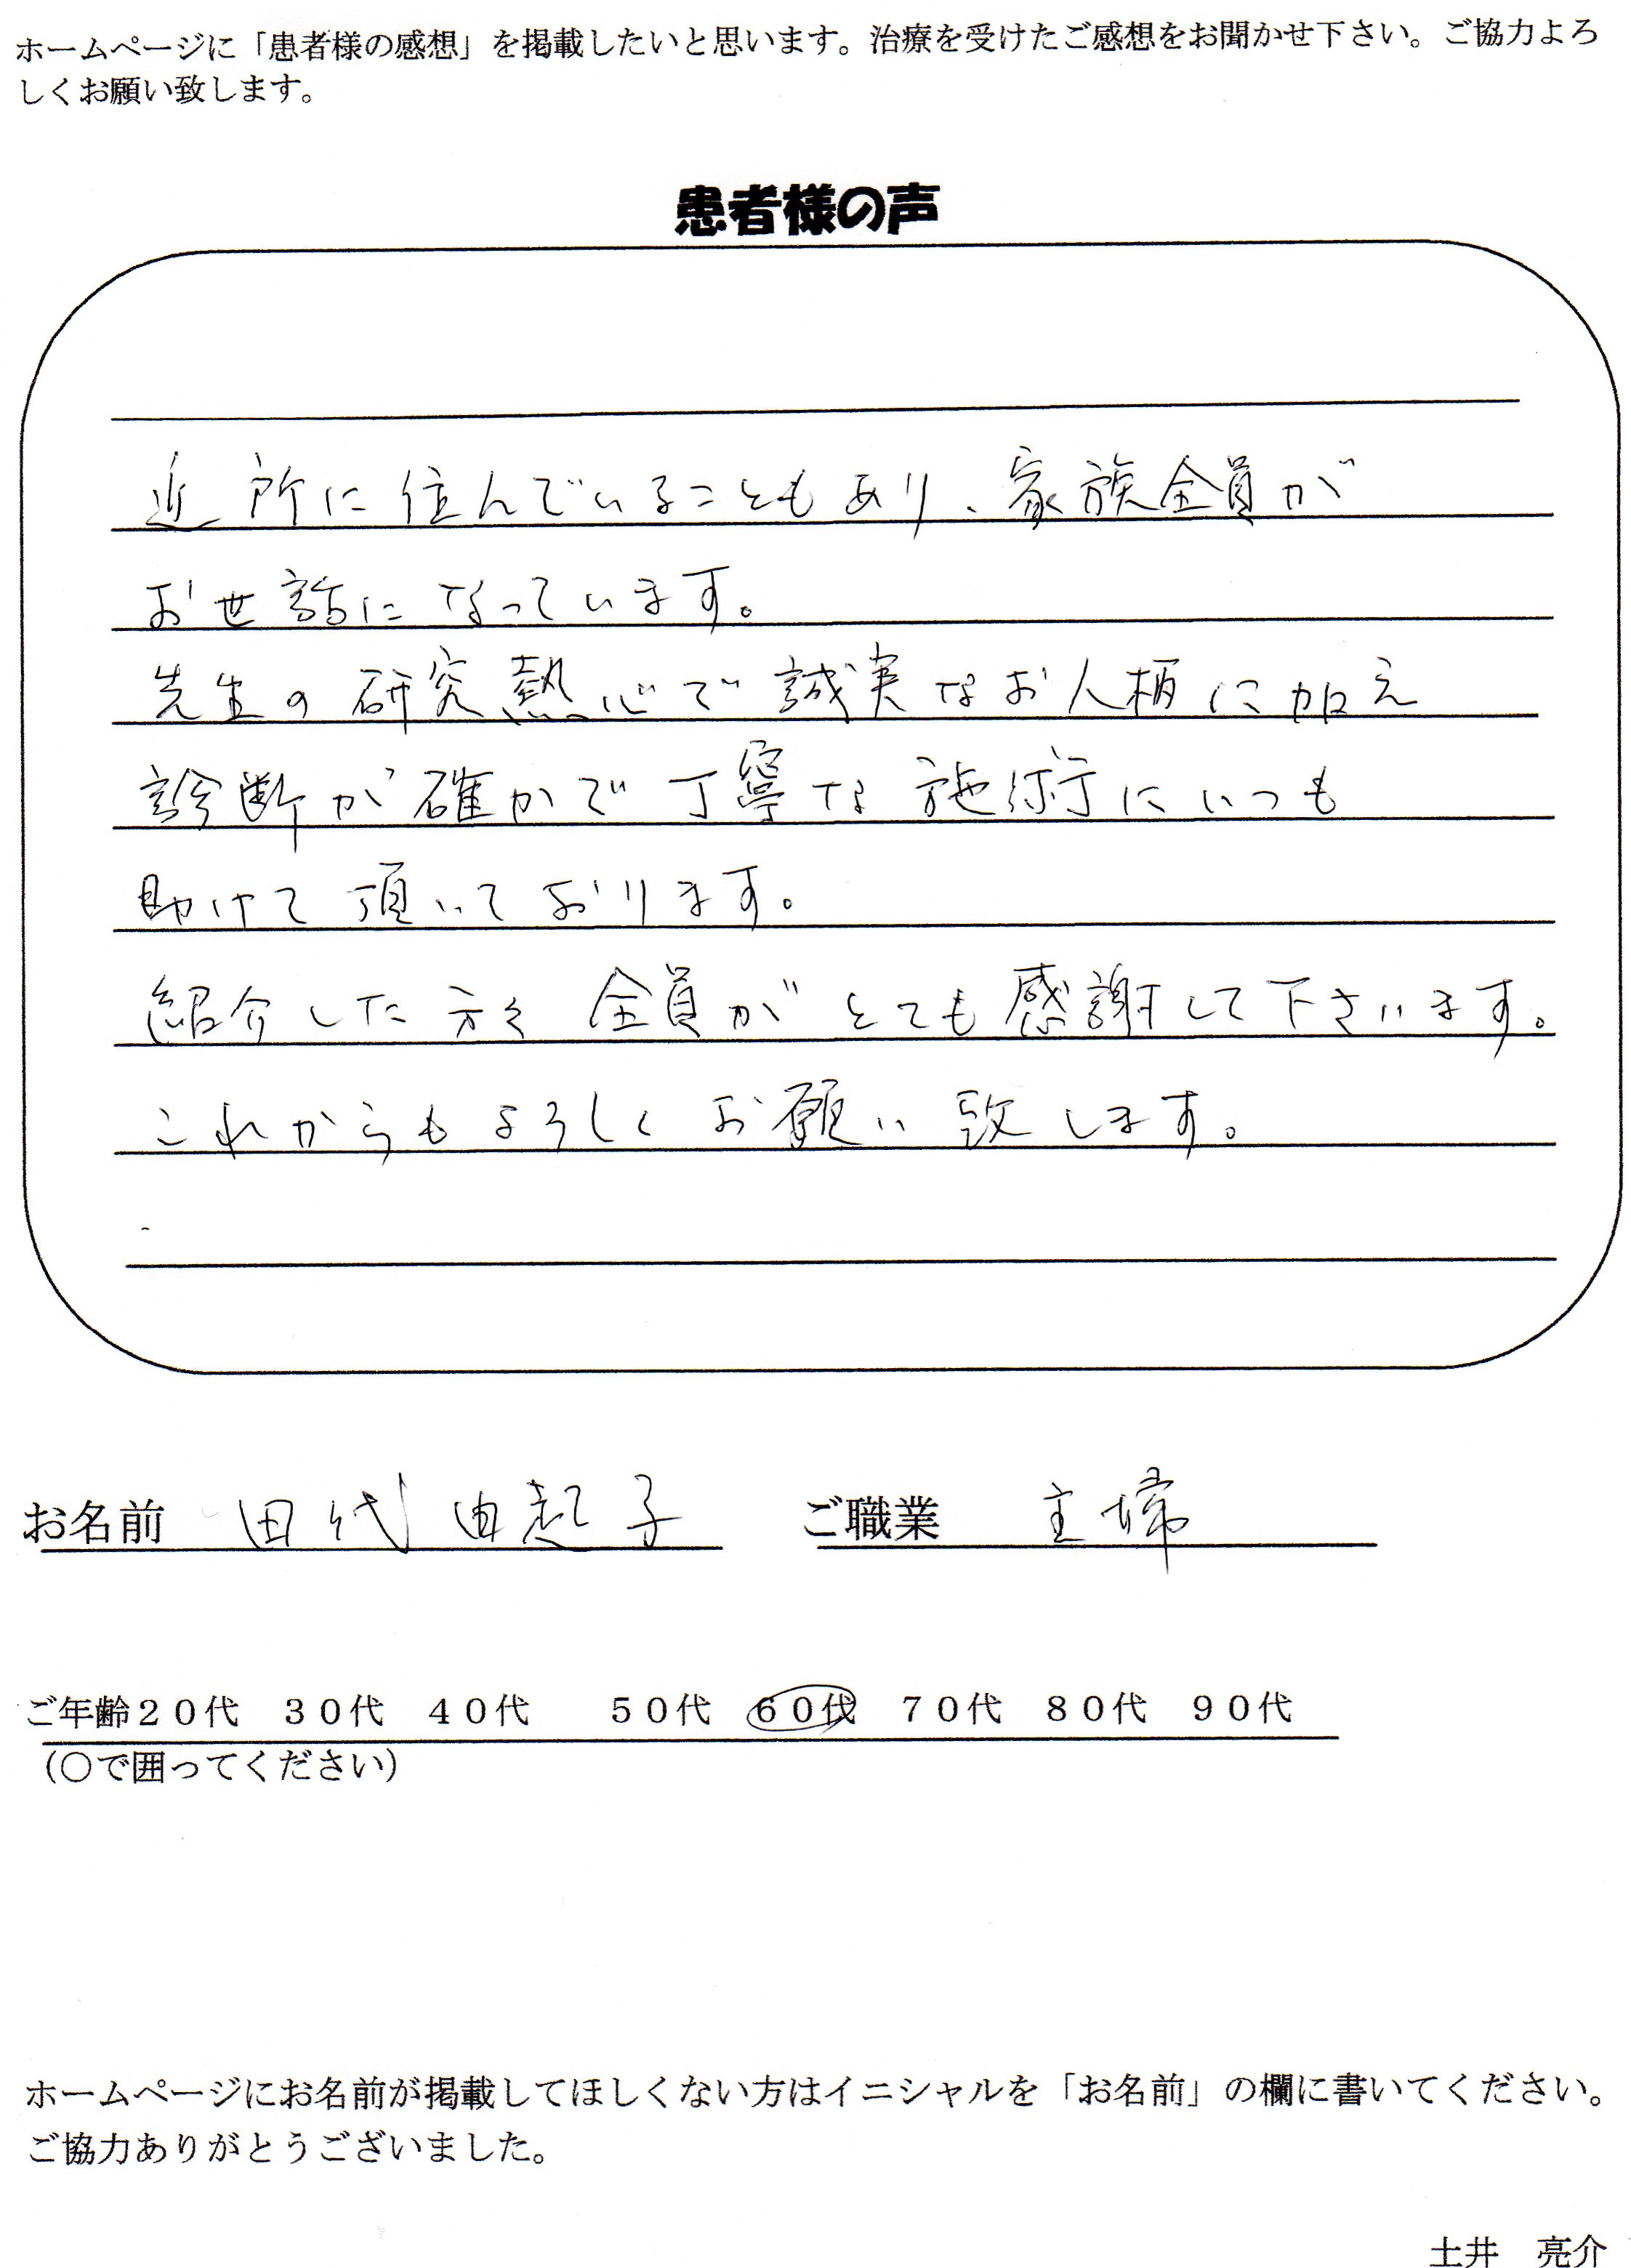 ホームページに「患者様の感想」を掲載したいと思います。治療を受けたご感想をお聞かせ下さい。ご協力よろ
しくお願い致します。
患者様の声
近所に住んでいることもあり、家族全員が
お世話になっています。
先生の研究熱心で誠実なお人柄に加え
診断が確かで丁寧な施術にいつも
助けて頂いております。
紹介した方々全員がとても感謝して下さいます。
これからもよろしくお願い致します。
お名前 田代由起子 ご職業 主婦
ご年齢20代 30代 40代 50代 60代 70代 80代 90代
(○で囲ってください)
ホームページにお名前が掲載してほしくない方はイニシャルを「お名前」の欄に書いてください。
ご協力ありがとうございました。
土井 亮介